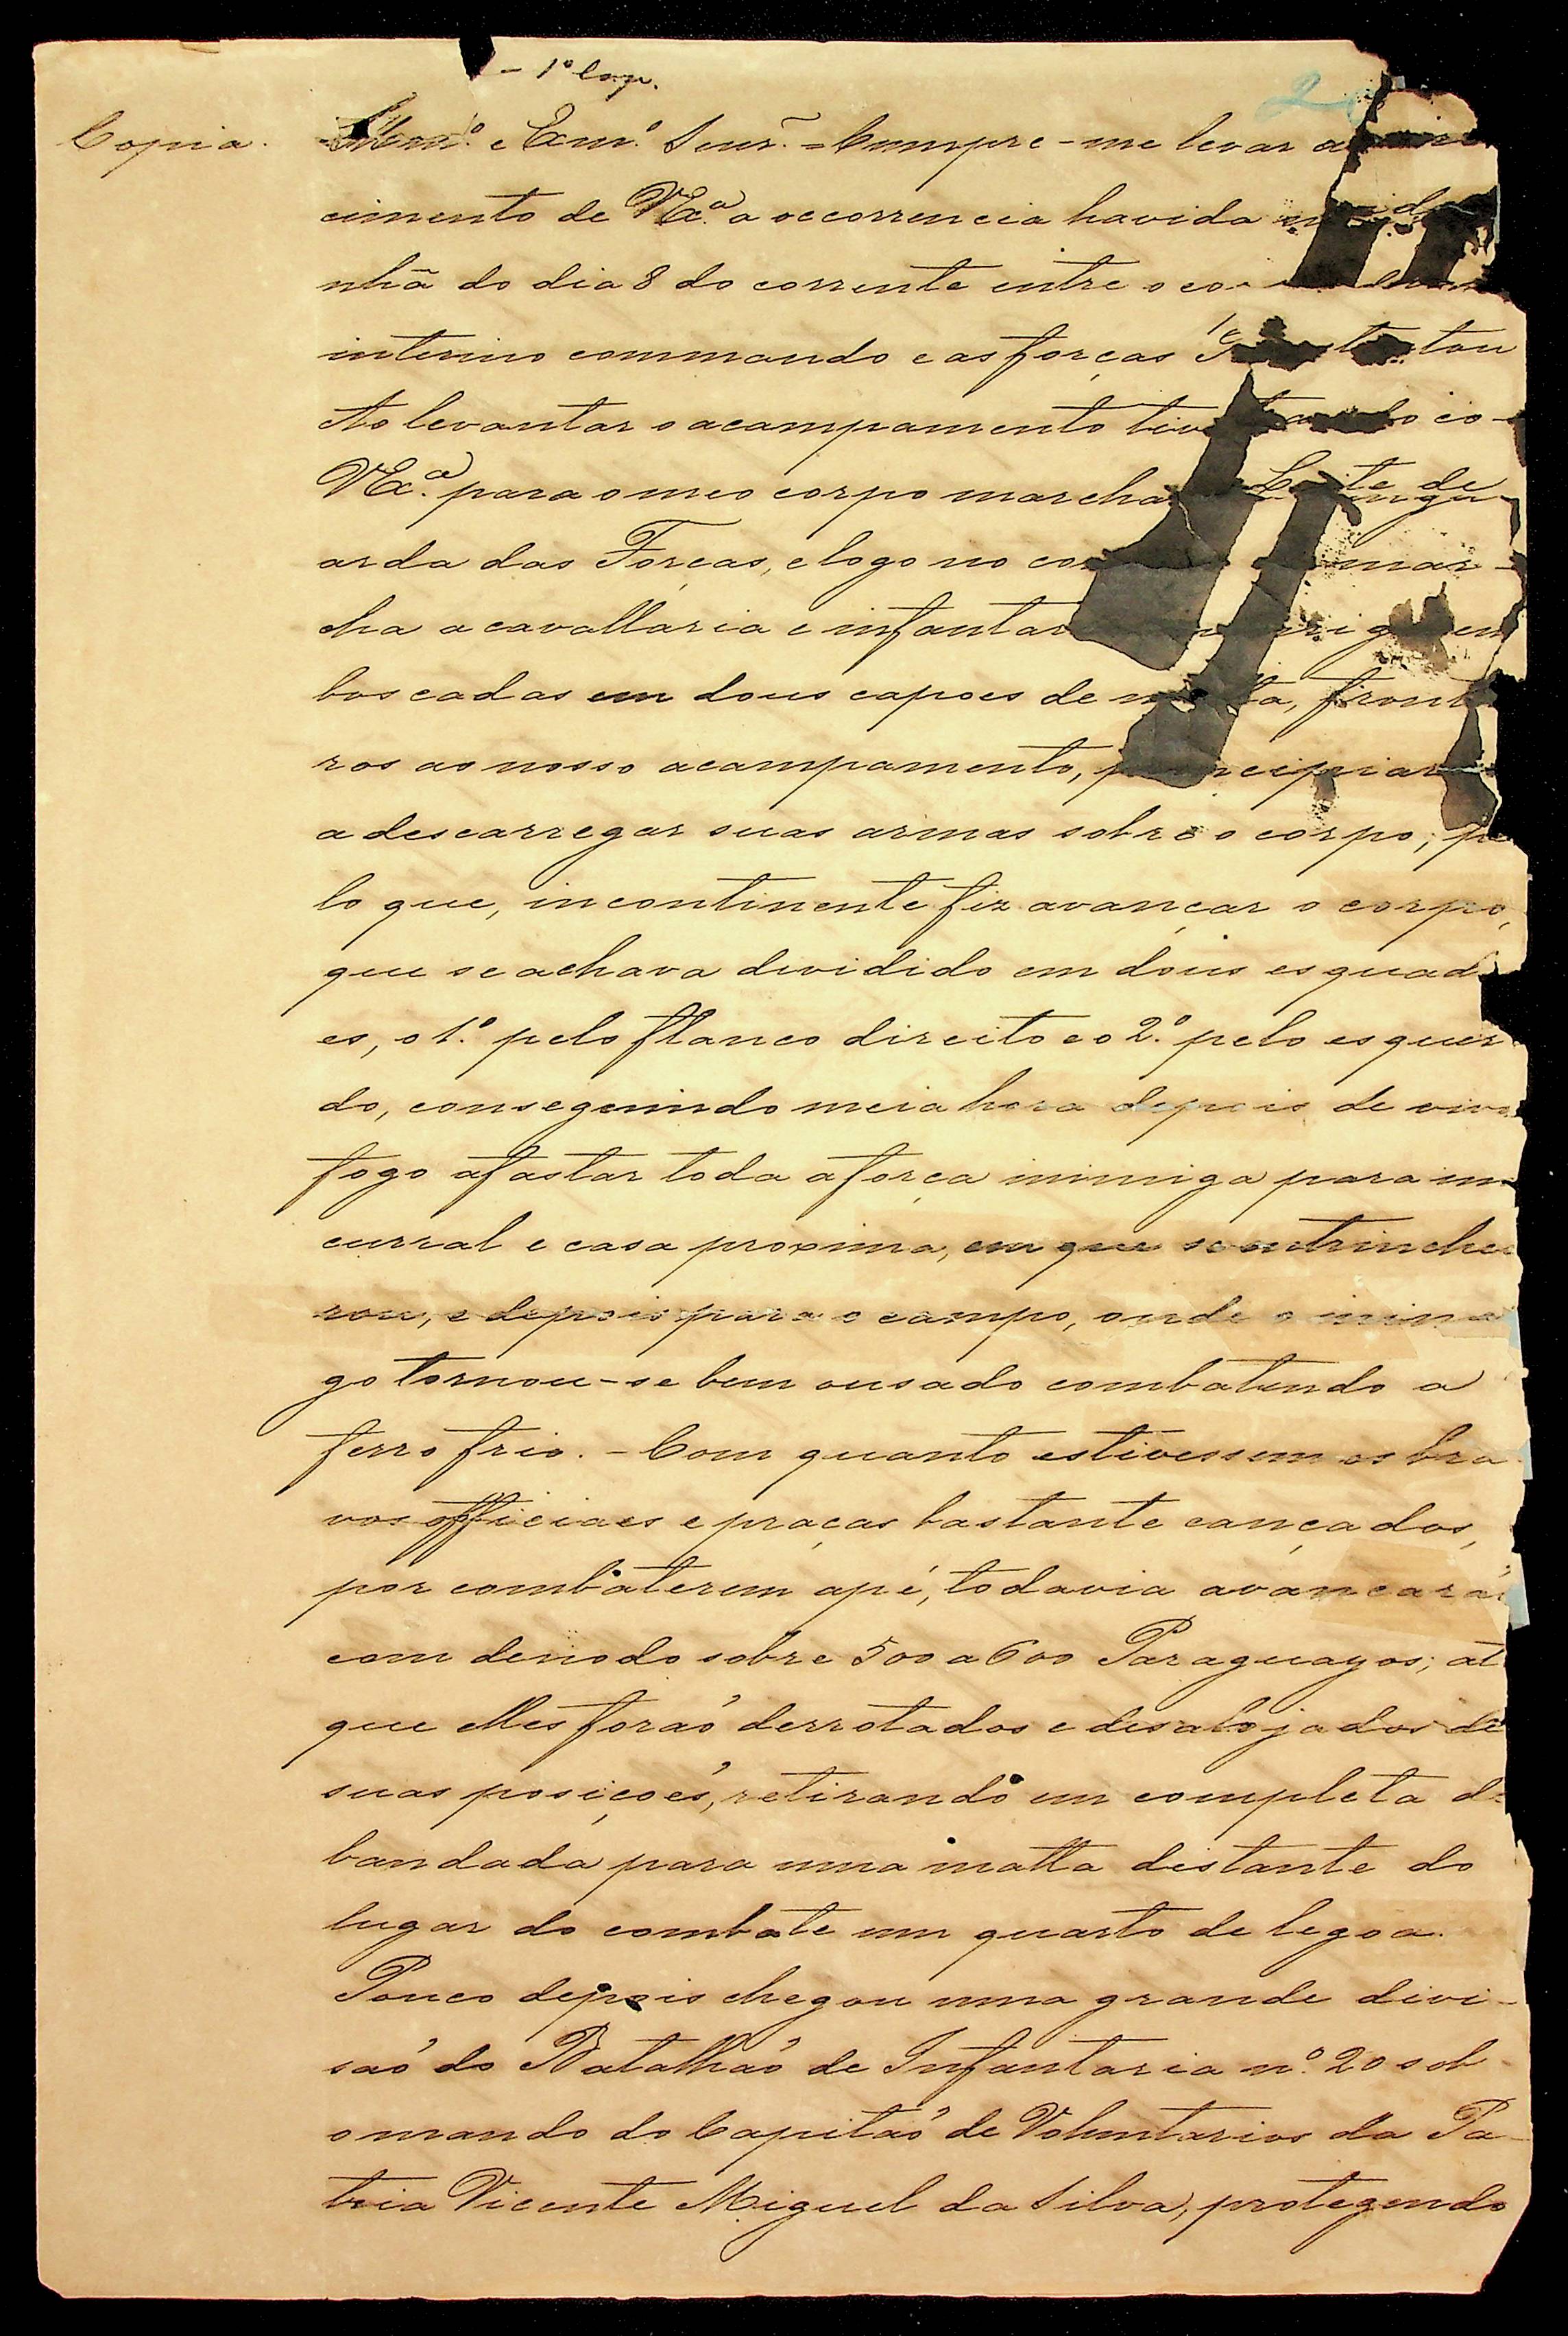 - 1º Corp.
Copia.
Illmº e Exmº Senr. = Cumpre-me levar a
cimento de VExª a occorrencia havida
nhã do dia 8 do corrente entre o
interino commando e as forças
Ao levantar o acampamento
VExª para o meo corpo marcha
arda das Forças, e logo no mar-
cha a cavallaria e infantar
boscadas em dous capoes de matta, front
ros ao nosso acampamento, principiar
a descarregar suas armas sobre o corpo; pe
lo que, incontinente fiz avançar o corpo,
que se achava dividido em dous esquad
es, o 1º pelo flanco direito e o 2º pelo esquer
do, conseguindo meia hora depois de vivo
fogo afastar toda a força inimiga para um
curral e casa proxima, em que se entrinchei
rou, e depois para o campo, onde o inimi
go tornou-se bem ousado combatendo a
ferro frio. - Com quanto estivessem os bra
vos officiaes e praças bastante cançados,
por combaterem apé, todavia avançará
com denodo sobre 500 a 600 Paraguayos; at
que elles foraó derrotados e desalojados de
suas posiçoés, retirando em completa de
bandada para uma matta distante do
lugar do combate um quarto de legoa.
Pouco depois chegou uma grande divi-
saó do Batalhaó de Infantaria nº 20 sob
o mando do Capitaó de Voluntarios da Pa-
tria Vicente Miguel da Silva, protegendo